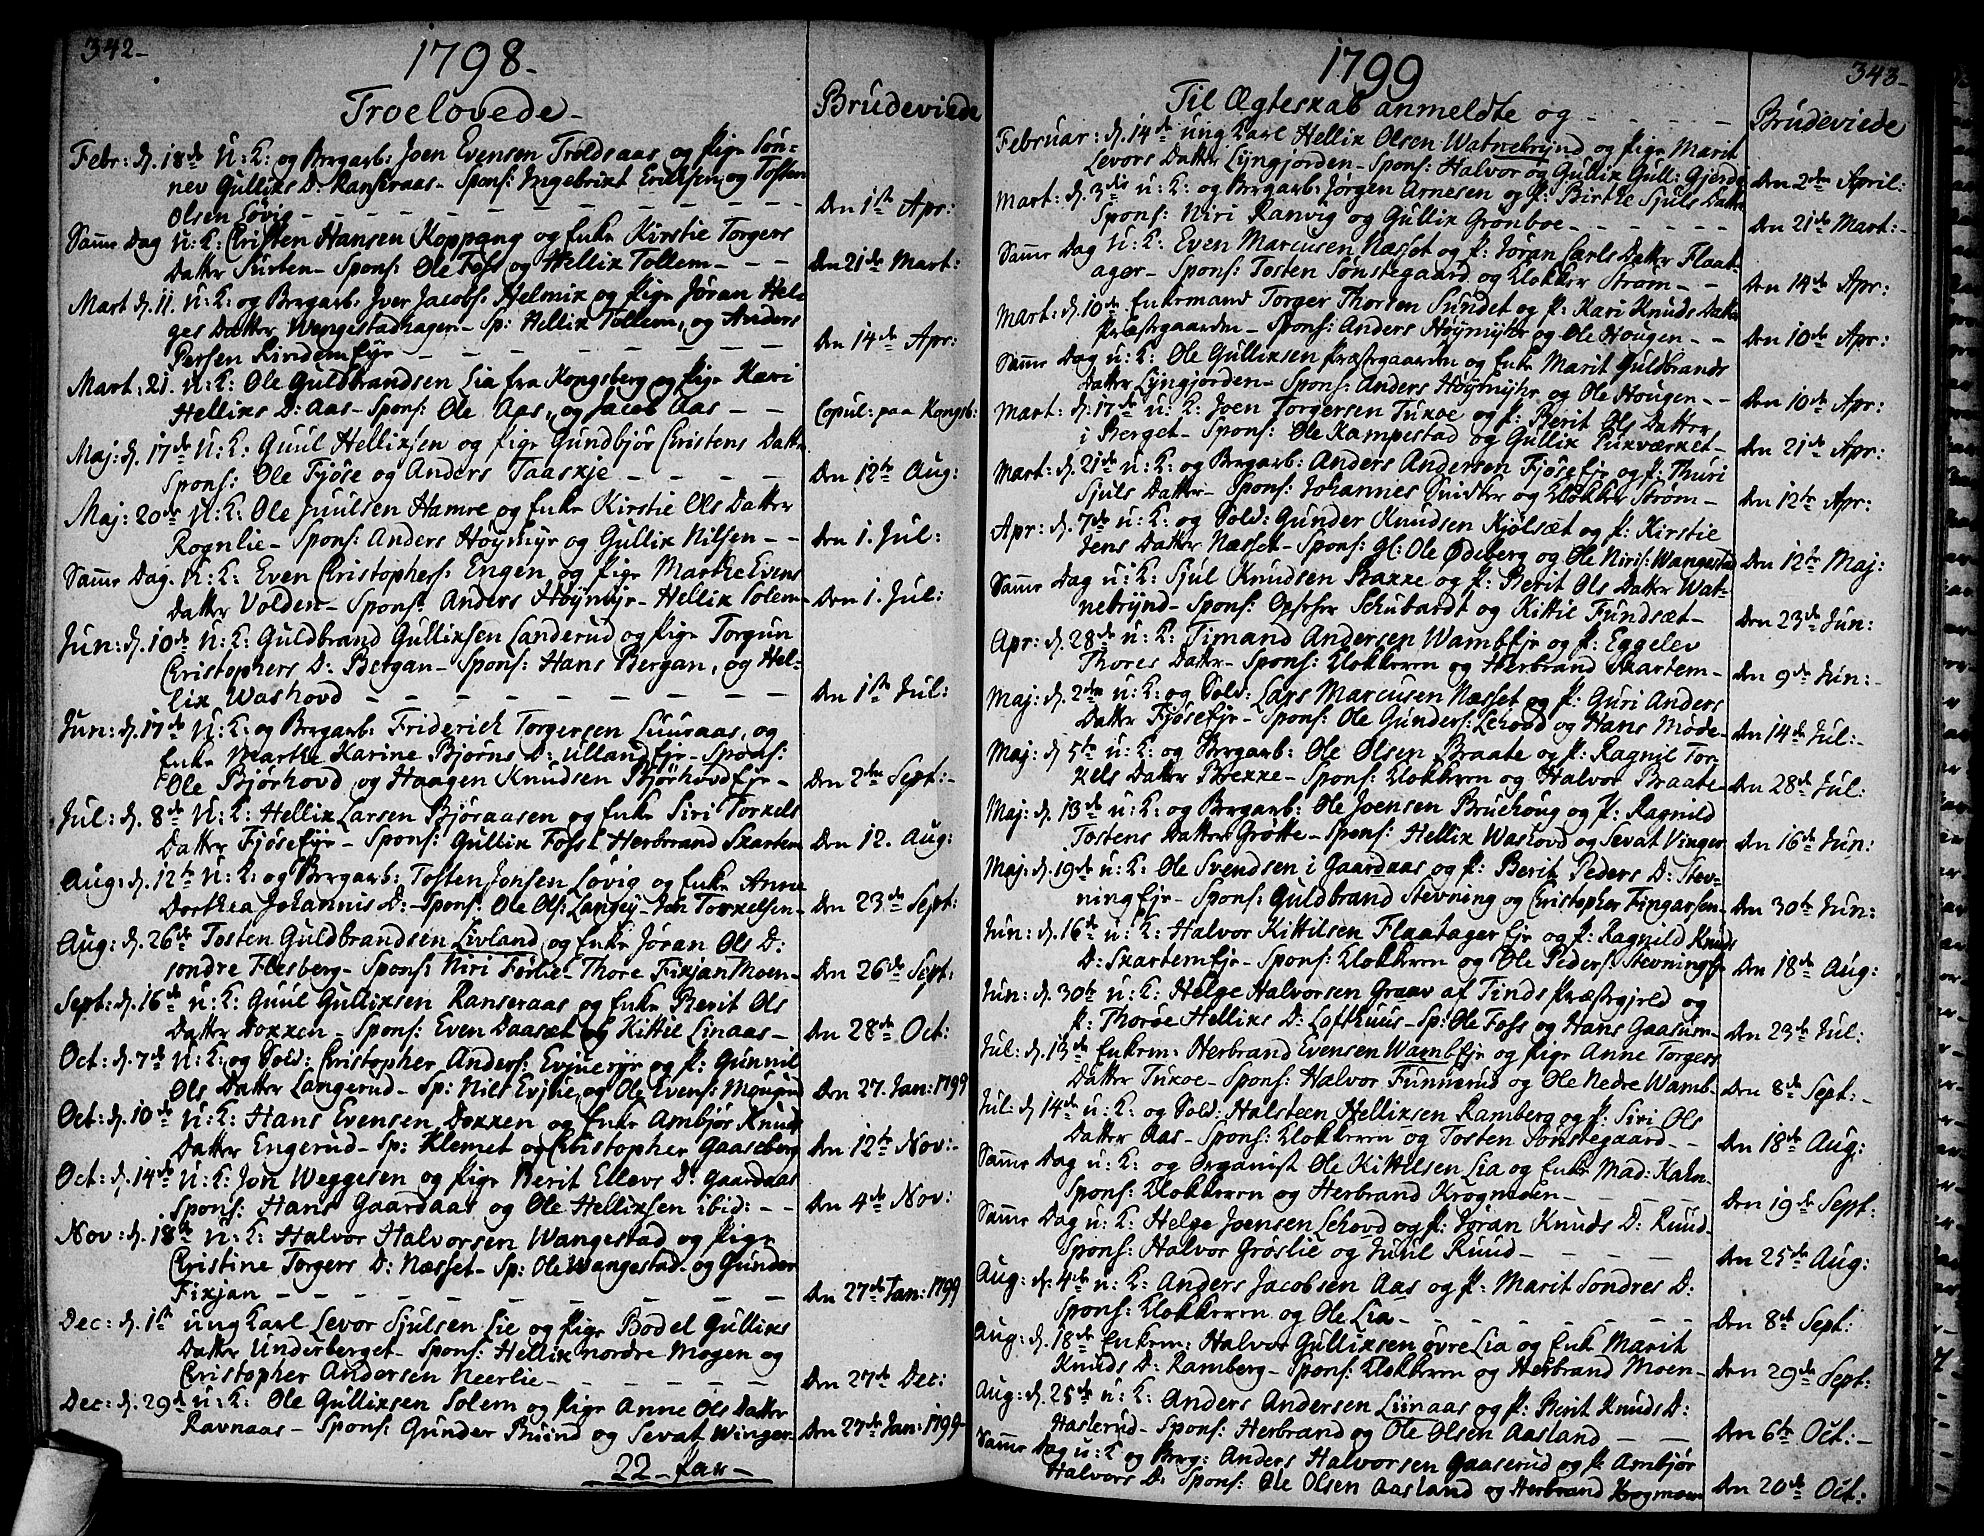 342-
1798-
Troelovede-
Brudeviede
Febr: d. 18de U: K: og Bergarb: Joen Evensen Troldsaas og Pige Søn=
nev Gulliks D: Ranseraas- Spons: Ingebrikt Eriksen og Tosten
Olsen Løvig - - - Den 1ste Apr:
Samme Dag U: K: Christen Hansen Koppang og Enke Kirstie Torgers
Datter Surten- Spons: Ole Foss og Hellik Tollem- - - Den 21de Mart:
Mart d. 11. U: K: og Bergarb: Iver Jacobs: Helmik og Pige Jøran Hel-
ges Datter Wangestadhagen- Sp: Hellik Tollem, og Anders
Persen Rindemejr - - - Den 14de Apr:
Mart: 21. U: K: Ole Guldbrandsen Lia fra Kongsberg og Pige Kari
Helliks D: Aas- Spons: Ole Aas, og Jacob Aas - - Copul: paa Kongsb:
Maj: d. 17de U: K: Guul Helliksen og Pige Gundbjør Christens Datter
Spons: Ole Fjøse og Anders Taaskje - - - Den 12te Aug:
Maj: 20de U: K: Ole Juulsen Hamre og Enke Kirstie Ols Datter
Rognlie- Spons: Anders Høymyr og Gullik Nilsen- - - Den 1. Jul:
Samme Dag. U: K: Even Christophers: Engen og Pige Marthe Evens
Datter Volden- Spons: Anders Høymyr- Hellik Tolem- Den 1. Jul:
Jun: d. 10de U: K: Guldbrand Gulliksen Landerud og Pige Torgun
Christophers D: Bergan- Spons: Hans Bergan, og Hel-
lik Washovd - - - Den 1ste Jul:
Jun: d. 17de U: K: og Bergarb: Friderich Torgersen Luuraas, og
Enke Marthe Karine Bjørns D: Ullandejr- Spons:
Ole Bjørhovd og Haagen Knudsen Bjørhovdejr- Den 2den Sept:-
Jul: d. 8de U: K: Hellik Larsen Bjøraasen og Enke Siri Torkels
Datter Fjøseejr- Spons: Gullik Foss & Herbrand Skartem Den 12. Aug:
Aug: d. 12te U: K: og Bergarb: Tosten Jonsen Løvig og Enke Anne
Dorthea Johannis D:- Spons: Ole Ols: Langey- Jon Torkelsen- Den 23de Sept:
Aug: d. 26de Tosten Guldbrandsen Livland og Enke Jøran Ols D:
søndre Flesberg- Spons: Niri Førlie- Thore Fixjan Moen- Den 26de Sept:
Sept: d. 16de U: K: Guul Gulliksen Ranseraas og Enke Berit Ols
Datter Dokken- Spons: Even Daaset og Kittil Linaas- Den 28de Oct:
Oct: d. 7de U: K: og Sold: Christopher Anders: Evjueejr og P: Gunnil
Ols Datter Langerud- Sp: Nils Evjue, og Ole Evens: Den 27. Jan: 1799
Oct: d. 10de U: K: Hans Evensen Dokken og Enke Ambjør Knuds
Datter Engerud- Sp: Klemet og Christopher Gaaseberg Den 12te Nov:-
Oct: d. 14de U: K: Jon Weggesen og Pige Berit Ellevs D: Gaardaas
Spons: Hans Gaardaas og Ole Helliksen ibid: - - Den 4de Nov:
Nov: d. 18de U: K: Halvor Halvorsen Wangestad og Pige
Christine Torgers D: Næsset- Sp: Ole Wangestad og Gunder
Fixjan - - - Den 27de Jan: 1799
Dec: d. 1ste ung Karl Levor Sjulsen Lie og Pige Bodel Gulliks
Datter Underberget- Spons: Hellik nordre Mogen og
Christopher Andersen Neerlie- - - Den 27de Dec:
Dec: d. 29de U: K: Ole Gulliksen Solem og Pige Anne Ols Datter
Ravnaas- Spons: Gunder Bruind og Sevat Winger- Den 27de Jan: 1799-
22- Par-
343-
1799
Til Ægteskab anmeldte og - - - -
Brudeviede
Februar: d. 14de ung Karl Hellik Olsen Watnebrynd og Pige Marit
Levors Datter Lyngjorden- Spons: Halvor og Gullik Gull: Gjerde Den 2den April:
Mart: d. 3die U: K: og Bergarb: Jørgen Arnesen og P: Birthe Sjuls Datter
Spons: Niri Ranvig og Gullik Grønboe- - - Den 21de Mart:-
Samme Dag U: K: Even Marcusen Næsset og P: Jøran Carls Datter Flaat-
ager- Spons: Tosten Sønstegaard og Klokker Strøm- - Den 14de Apr:
Mart: d. 10de Enkemand Torger Thorsen Sundet og P: Kari Knuds Datter
Præstegaarden- Spons: Anders Høymyhr og Ole Hougen- - Den 10de Apr:
Samme Dag U: K: Ole Gulliksen Præstegaarden og Enke Marit Guldbrands
Datter Lyngjorden- Spons: Anders Høymyhr og Ole Hougen- - Den 10de Apr:
Mart: d. 17de U: K: Joen Torgersen Tukoe og P: Berit Ols Datter
i Berget- Spons: Ole Kampestad og Gullik Pukværket- Den 21de Apr:
Mart: d. 21de U: K: og Bergarb: Anders Andersen Fjøseejr og P: Thuri
Sjuls Datter- Spons: Johannes Snidker og Klokker Strøm- Den 12te Apr:
Apr: d. 7de U: K: og Sold: Gunder Knudsen Kjølsæt og P: Kirstie
Jens Datter Næsset- Spons: gl: Ole Ødeberg og Ole Niris: Wangestad Den 12te Maj:
Samme Dag U: K: Sjul Knudsen Bakke og P: Berit Ols Datter Wat-
nebrynd- Spons: Schubardt og Kittil Fundsæt- Den 23de Jun:
Apr: d. 28de U: K: Timand Andersen Wambejr og P: Eggelev
Thores Datter- Spons: Klokkeren og Herbrand Skartem- Den 9de Jun:-
Maj: d. 2den U: K: og Sold: Lars Marcusen Næsset og P: Guri Anders
Datter Fjøseejr- Spons: Ole Gunders: Lehovd og Hans Møde- Den 14de Jul:-
Maj: d. 5te U: K: og Bergarb: Ole Olsen Braate og P: Ragnil Tor-
kels Datter Brekke- Spons: Klokkeren og Halvor Braate- Den 28de Jul:
Maj: d. 13de U: K: og Bergarb: Ole Joensen Bruehoug og P: Ragnild
Tostens Datter Grøtte- Spons: Hellik Waslovd og Sevat Vinger Den 16de Jun:
Maj: d. 19de U: K: Ole Svendsen i Gaardaas og P: Berit Peders D: Stev-
ningejr- Spons: Guldbrand Stevning og Christopher Fingarsen- Den 30te Jun:
Jun: d. 16de U: K: Halvor Kittilsen Flaatagerejr og P: Ragnild Knuds
D: Skartemejr- Spons: Klokkeren og Ole Peders: Stevningejr Den 18de Aug:
Jun: d. 30te U: K: Helge Halvorsen Graav af Tinds Præstegjeld og
P: Thoróe Helliks D: Lofthuus- Sp: Ole Foss og Hans Gaasum- Den 23de Jul:
Jul: d. 13de Enkem: Herbrand Evensen Wambejr og Pige Anne Torgers
Datter Tukoe- Spons: Halvor Funnerud og Ole Nedre Wamb- Den 8de Sept:-
Jul: d. 14de U: K: og Sold: Halsteen Helliksen Ramberg og P: Siri Ols
Datter Aas- Spons: Klokkeren og Tosten Sønstegaard- - Den 18de Aug:
Samme Dag U: K: og Organist Ole Kittilsen Lia og Enke Mad: Kahn-
Spons: Klokkeren og Herbrand Krogmoen- - - Den 19de Sept:
Samme Dag U: K: Helge Joensen Lehovd og P: Jøran Knuds D: Ruud-
Spons: Halvor Grøslie og Juul Ruud- - - Den 25de Aug:
Aug: d. 4de U: K: Anders Jacobsen Aas og P: Marit Søndres D:
Spons: Klokkeren og Ole Lia- - - Den 8de Sept:
Aug: d. 18de Enkem: Halvor Gulliksen øvre Lia og Enk Marit
Knuds D: Ramberg- Spons: Klokkeren og Herbrand Moen- Den 29de Sept:
Aug: d. 25de U: K: Anders Andersen Liinaas og P: Berit Knuds D:
Haslerud- Spons: Herbrand og Ole Olsen Aasland - - Den 6te Oct:-
Samme Dag U: K: og Berg: Anders Halvorsen Gaaserud og P: Ambjør
Halvors D: Spons: Ole Olsen Aasland og Herbrand Krogmoen Den 20de Oct: